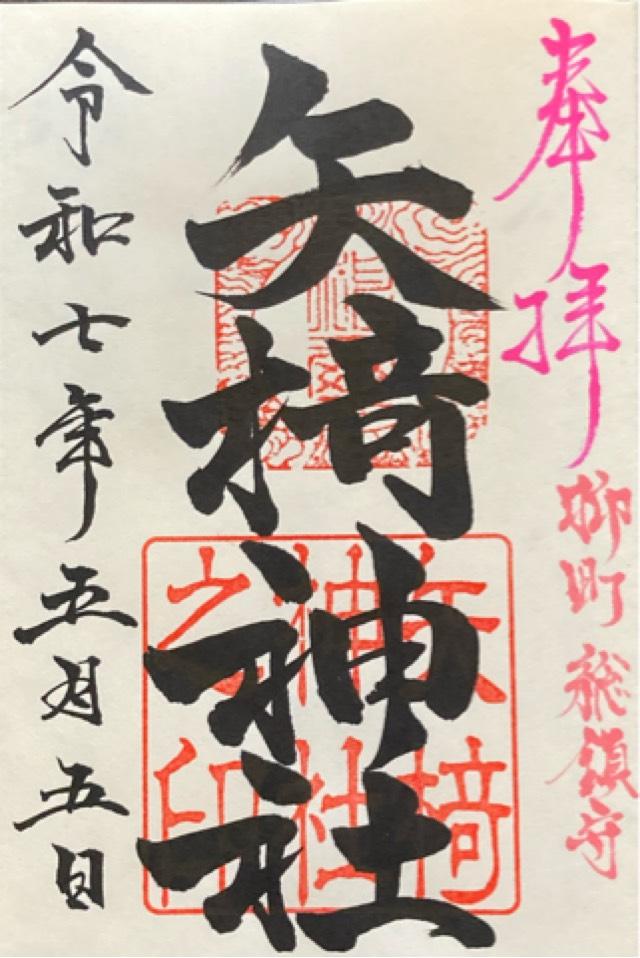 奉拝
柳町総鎮守
矢椅神社
矢椅
神社
之印
令和七年五月五日